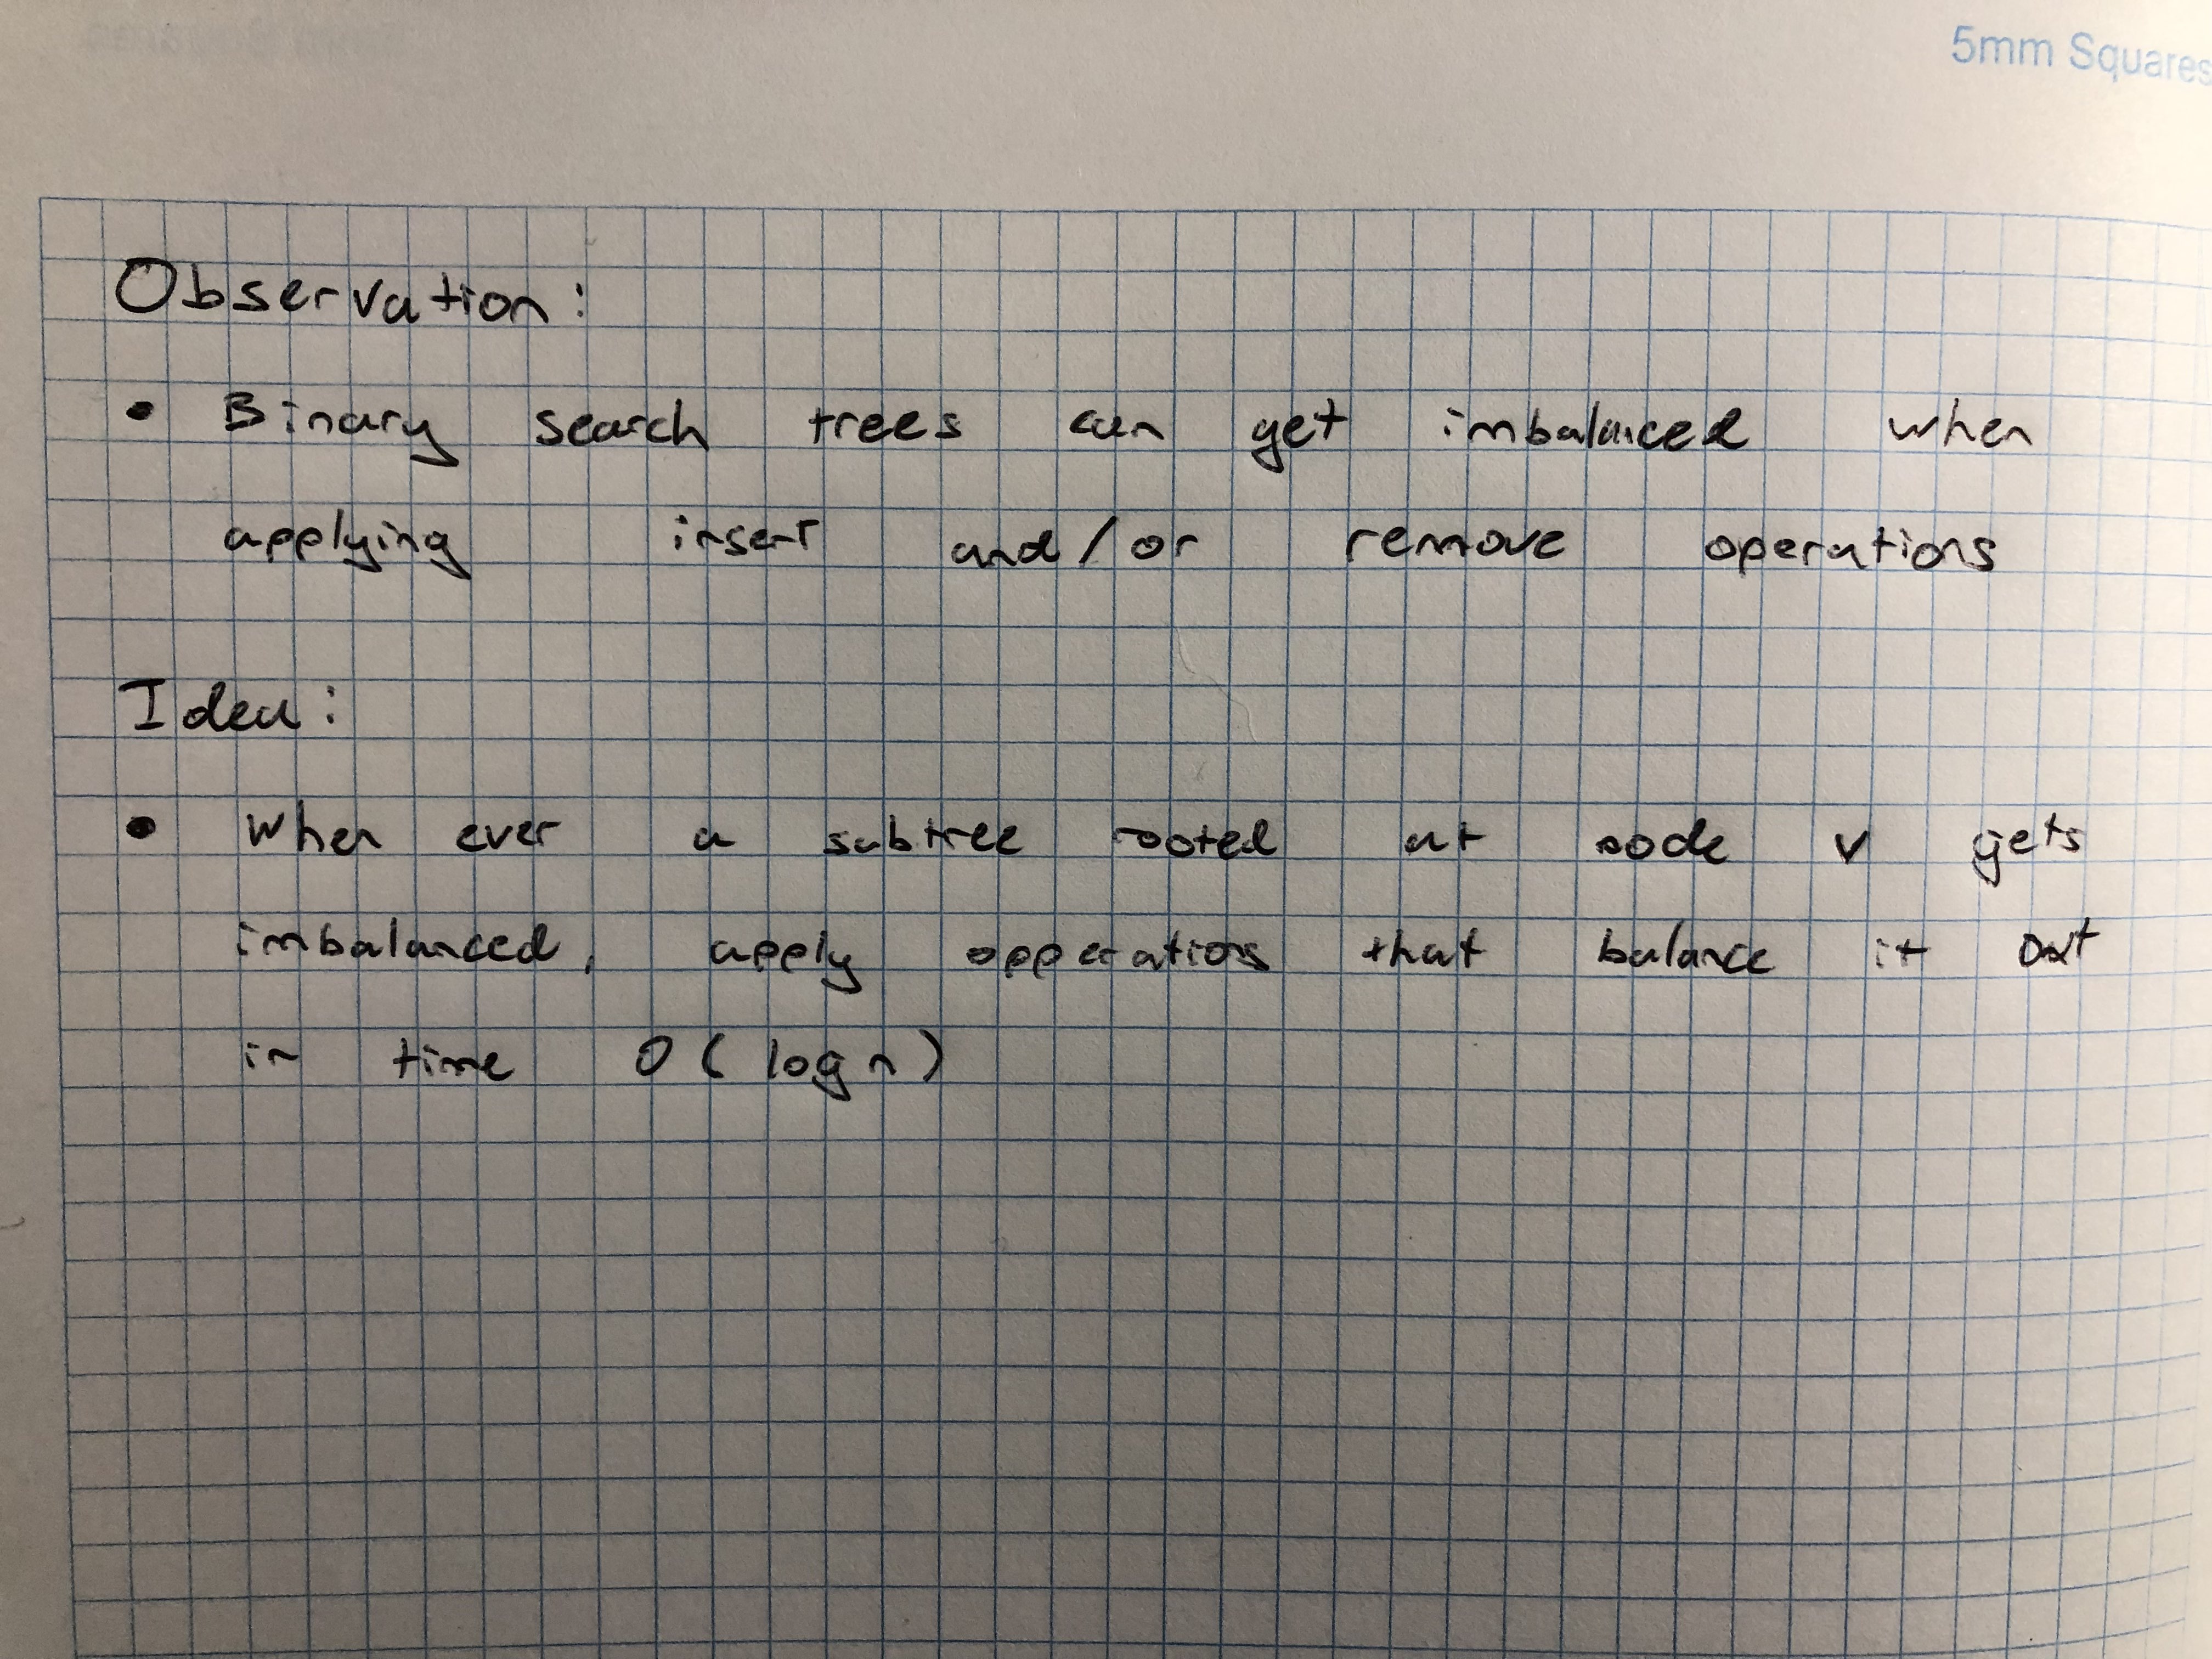 5mm Squares
Observation:
• Binary search trees can get imbalanced when
applying insert and/or remove operations
Idea:
• When ever a subtree rooted at node v gets
imbalanced, apply opperations that balance it out
in time O(log n)